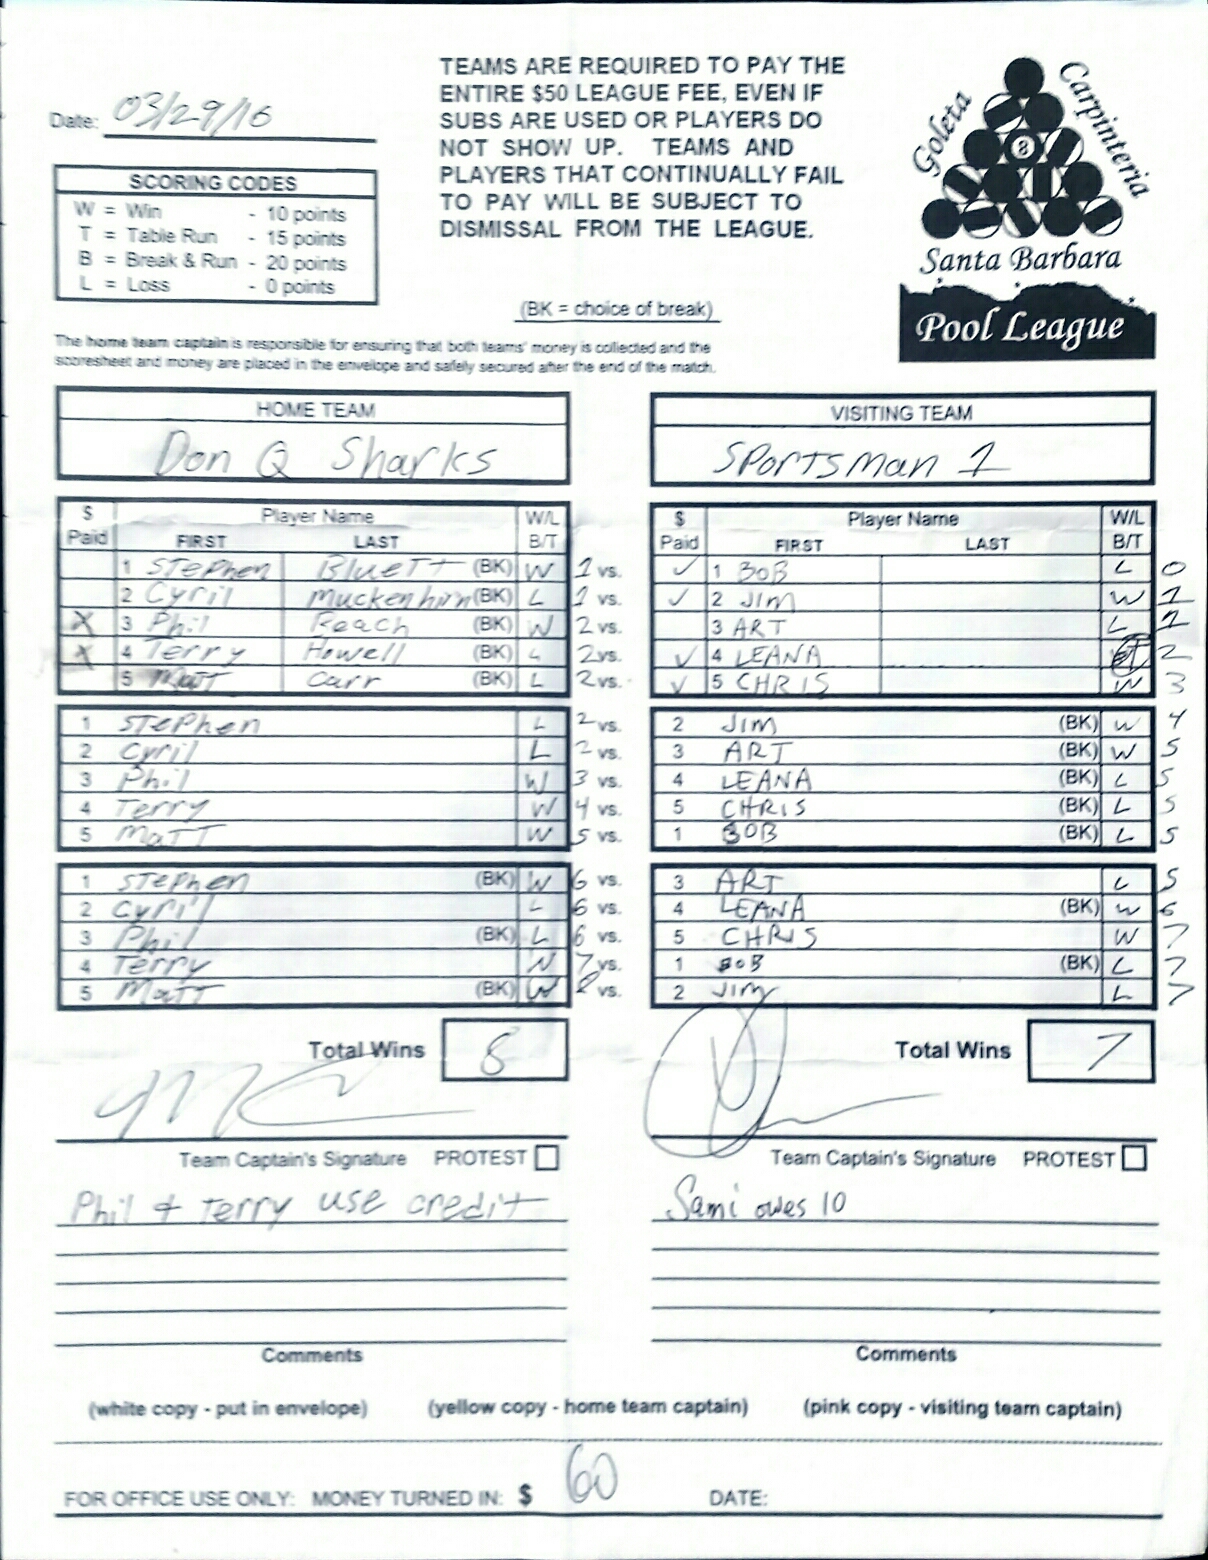 TEAMS ARE REQUIRED TO PAY THE
ENTIRE $50 LEAGUE FEE, EVEN IF
SUBS ARE USED OR PLAYERS DO
NOT SHOW UP. TEAMS AND
PLAYERS THAT CONTINUALLY FAIL
TO PAY WILL BE SUBJECT TO
DISMISSAL FROM THE LEAGUE.
Date: 03/29/16
SCORING CODES
W = Win - 10 points
T = Table Run - 15 points
B = Break & Run - 20 points
L = Loss - 0 points
(BK = choice of break)
Goleta
Carpinteria
8
Santa Barbara
Pool League
The home team captain is responsible for ensuring that both teams' money is collected and the
scoresheet and money are placed in the envelope and safely secured after the end of the match.
HOME TEAM
Don Q Sharks
VISITING TEAM
SPORTSMAN 1
$ Paid Player Name FIRST LAST W/L B/T
$ Paid Player Name FIRST LAST W/L B/T
1 Stephen Bluett (BK) W 1 vs. ✓ 1 BOB L 0
2 Cyril Muckenhirn (BK) L 1 vs. ✓ 2 JIM W 1
X 3 Phil Roach (BK) W 2 vs. 3 ART L 1
X 4 Terry Howell (BK) L 2 vs. ✓ 4 LEANA 2
5 Matt Carr (BK) L 2 vs. ✓ 5 CHRIS W 3
1 Stephen L 2 vs. 2 JIM (BK) W 4
2 Cyril L 2 vs. 3 ART (BK) W 5
3 Phil W 3 vs. 4 LEANA (BK) L 5
4 Terry W 4 vs. 5 CHRIS (BK) L 5
5 Matt W 5 vs. 1 BOB (BK) L 5
1 Stephen (BK) W 6 vs. 3 ART L 5
2 Cyril L 6 vs. 4 LEANA (BK) W 6
3 Phil (BK) L 6 vs. 5 CHRIS W 7
4 Terry W 7 vs. 1 BOB (BK) L 7
5 Matt (BK) W 8 vs. 2 JIM L 7
Total Wins 8
Total Wins 7
Team Captain's Signature PROTEST
Team Captain's Signature PROTEST
Phil & Terry use credit
Sami owes 10
Comments
Comments
(white copy - put in envelope) (yellow copy - home team captain) (pink copy - visiting team captain)
FOR OFFICE USE ONLY: MONEY TURNED IN: $ 60 DATE: